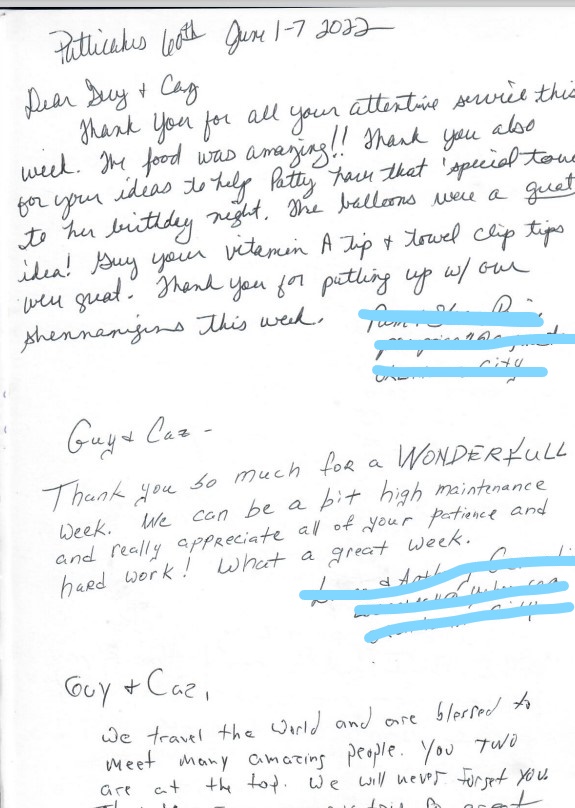 Patticakes 60th June 1-7 2022
Dear Guy + Caz
Thank you for all your attentive service this
week. The food was amazing!! Thank you also
for your ideas to help Patty have that 'special touc
to her birthday night. The balloons were a great
idea! Guy your vitamin A tip + towel clip tips
were great. Thank you for putting up w/ our
shennanigins this week.
City
Guy + Caz -
Thank you so much for a WONDERFULL
week. We can be a bit high maintenance
and really appreciate all of your patience and
hard work! What a great week.
Guy + Caz,
We travel the world and are blessed to
meet many amazing people. You two
are at the top. We will never forget you.